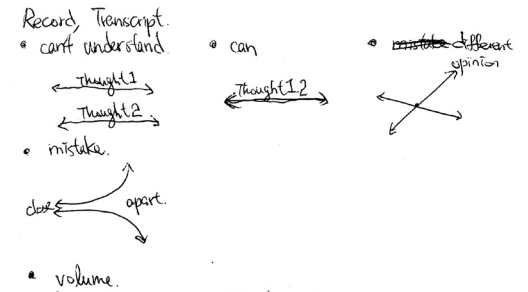 Record, Transcript.
• can't understand.
Thought 1
Thought 2
• can
Thought 1.2
• different
opinion
• mistake.
close
apart.
• volume.